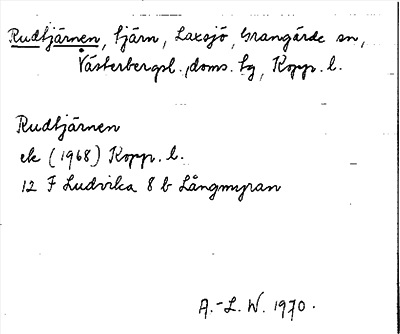 Rudtjärnen, tjärn, Laxsjö, Grangärde sn,
Västerbergsl. doms. tg, Kopp. l.
Rudtjärnen
ek (1968) Kopp. l.
12 F Ludvika 8 b Långmyran
A.-L. W. 1970.